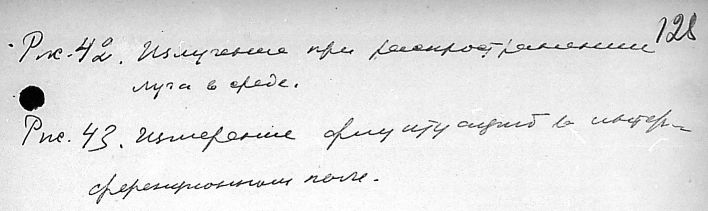 128
Рис. 42. Излучение при распространении
луча в среде.
Рис. 43. Измерение флуктуаций в интер-
ференционном поле.